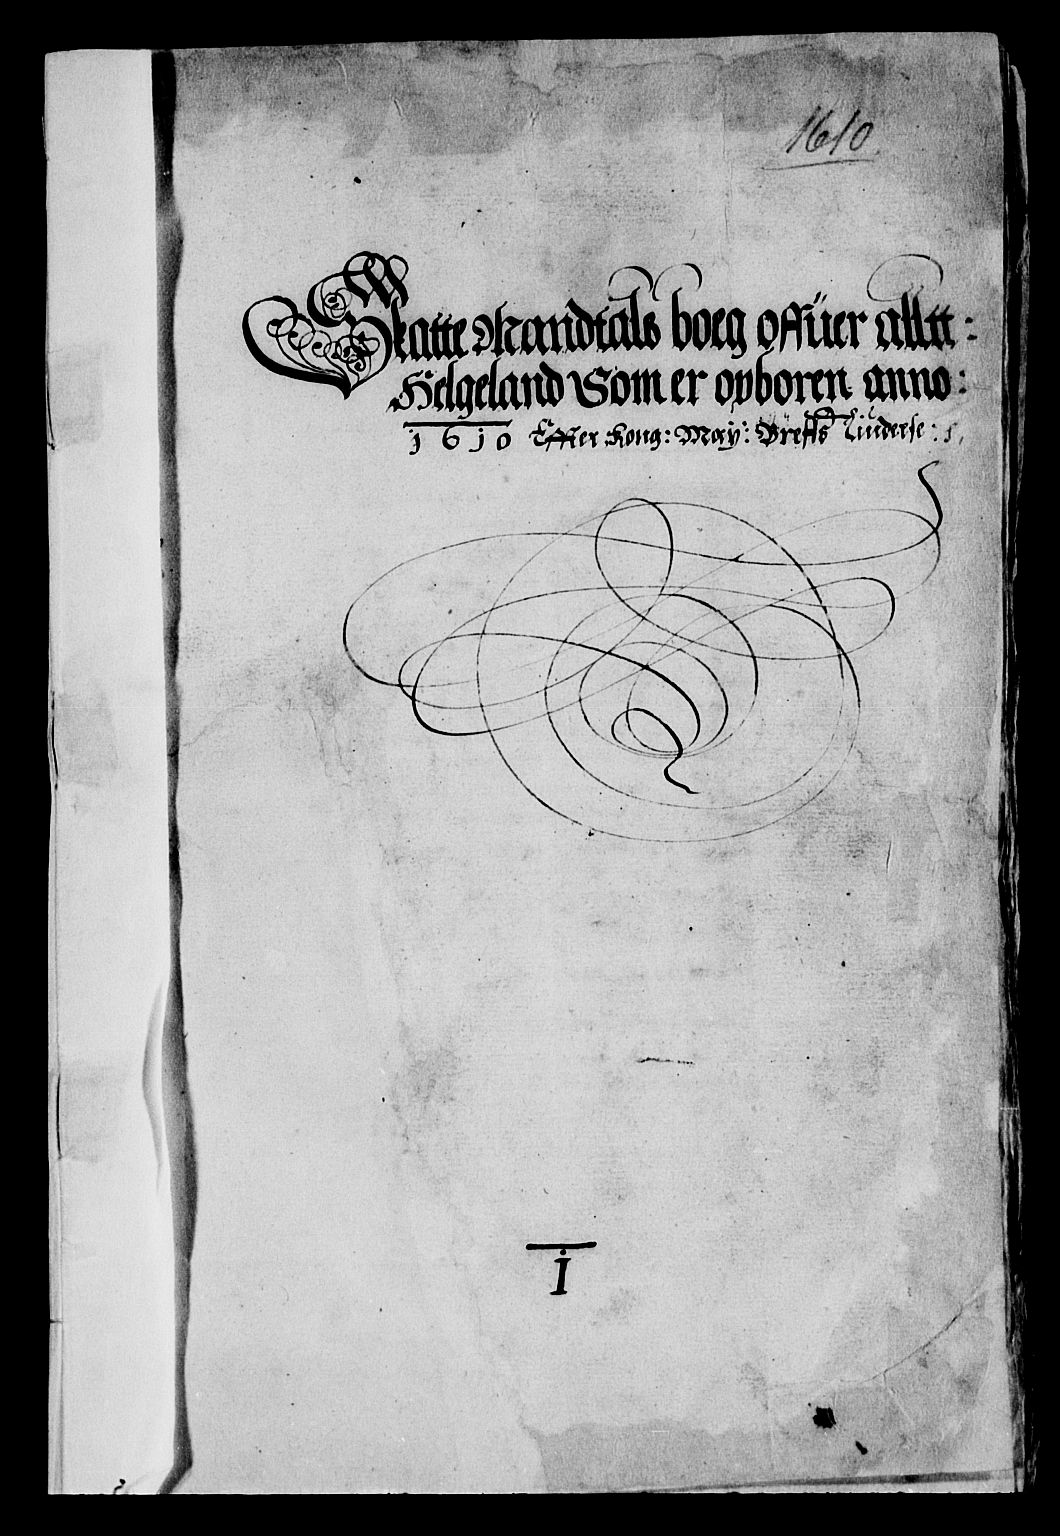 1610
Skatte Mandtals boeg offüer alltt:
Helgeland Som er opboren anno:
1610 Effter Kong: May: Breffs Liüderse:
1